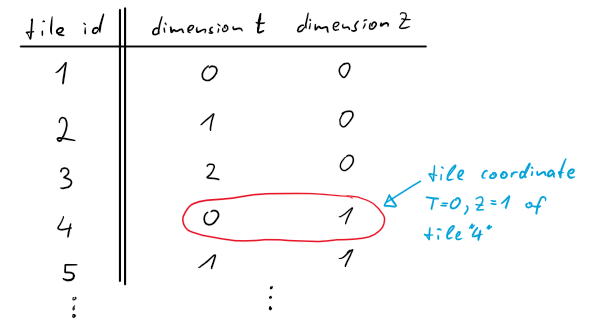 tile id dimension t dimension z
1 0 0
2 1 0
3 2 0
4 0 1
5 1 1
⋮ ⋮
tile coordinate
T=0, z=1 of
tile "4"